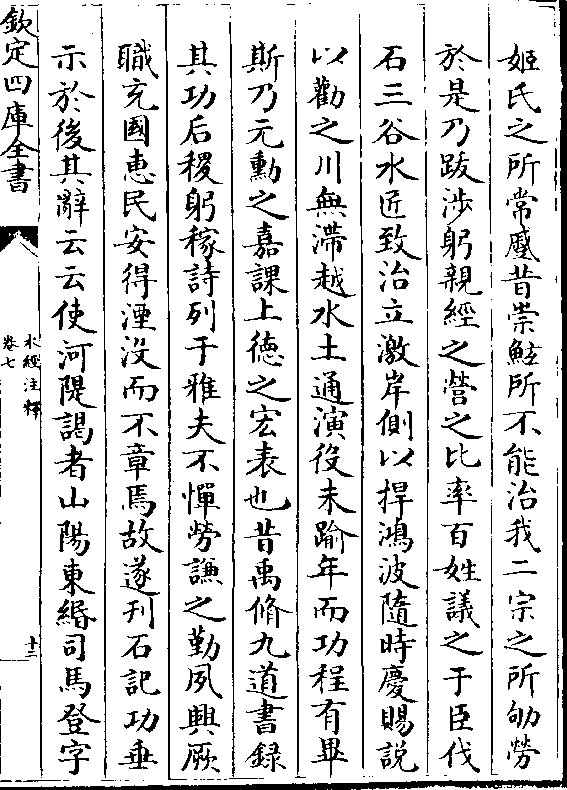 姬氏之所常蹙昔崇鯀所不能治我二宗之所劬勞
於是乃跋涉躬親經之營之比率百姓議之于臣伐
石三谷水匠致治立激岸側以捍鴻波隨時慶賜説
以勸之川無滯越水土通演役未踰年而功程有畢
斯乃元勳之嘉課上徳之宏表也昔禹脩九道書録
其功后稷躬稼詩列于雅夫不憚勞謙之勤夙興厥
職充國恵民安得湮没而不章焉故遂刋石記功垂
示於後其辭云云使河隄謁者山陽東緡司馬登字
欽定四庫全書
水經注釋
卷七
十三